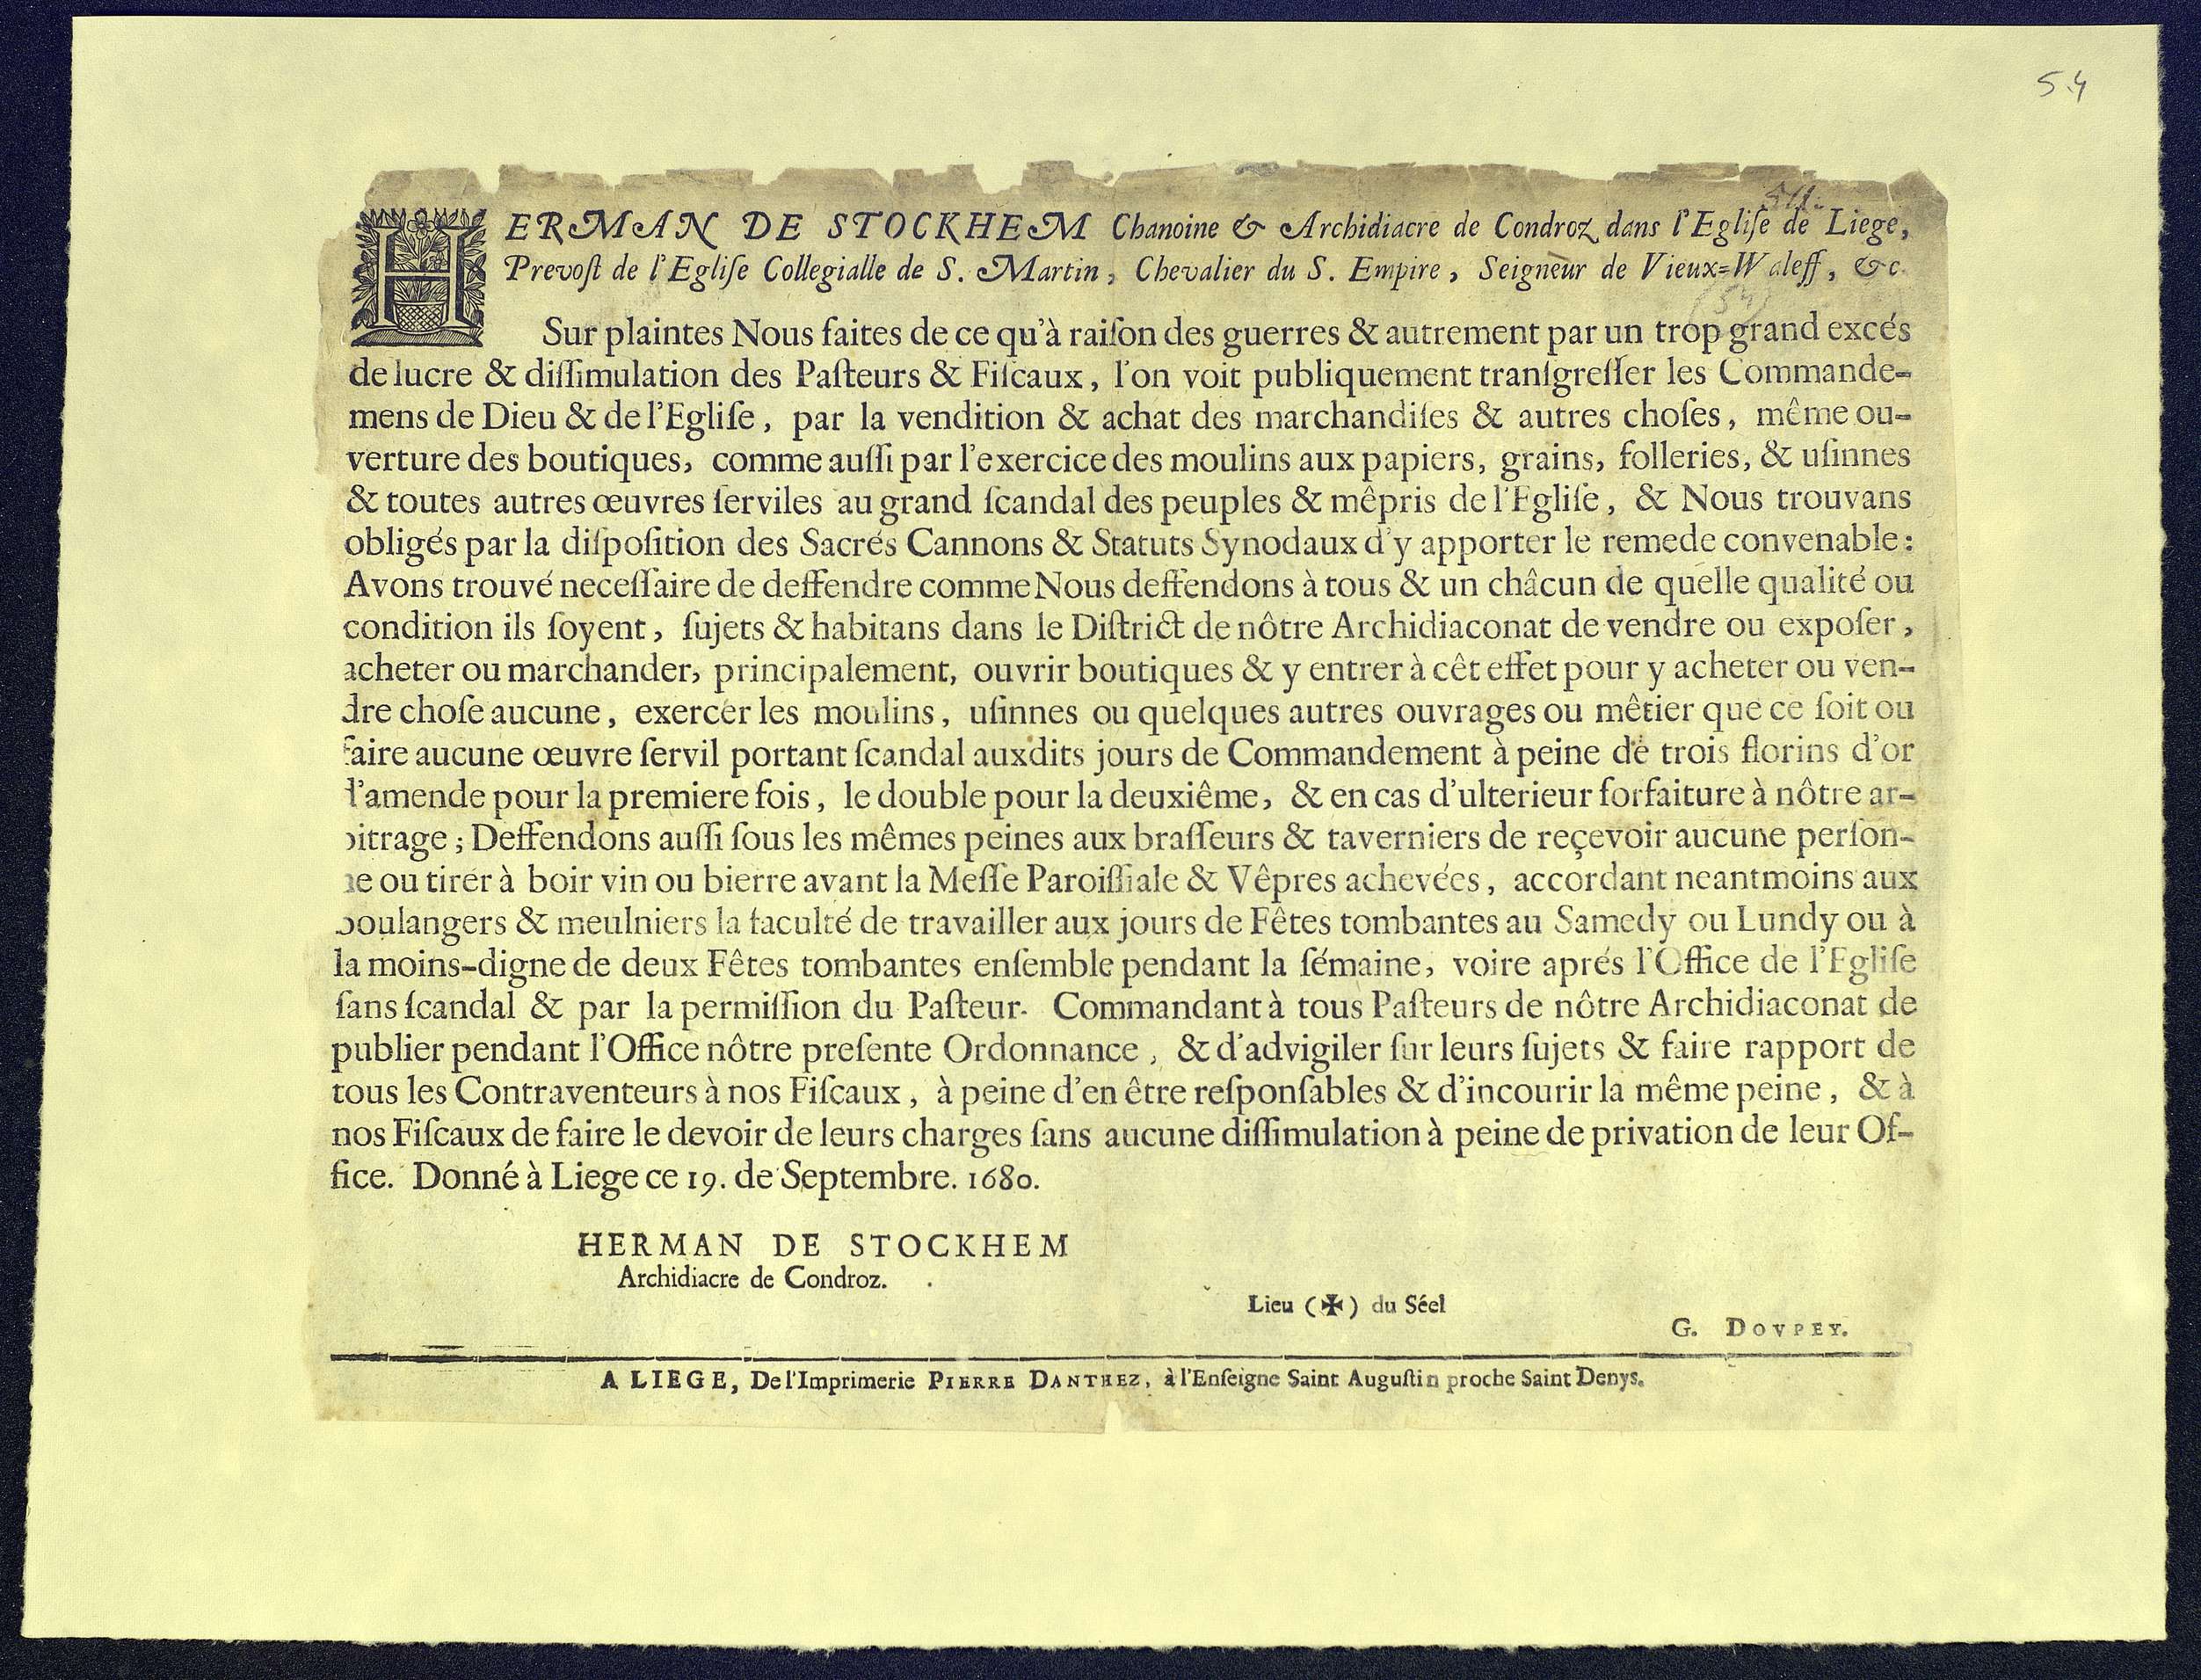 5.4
HERMAN DE STOCKHEM Chanoine & Archidiacre de Condroz dans l'Egliſe de Liege,
Prevoſt de l'Egliſe Collegialle de S. Martin, Chevalier du S. Empire, Seigneur de Vieux-Waleff, &c.
Sur plaintes Nous faites de ce qu'à raiſon des guerres & autrement par un trop grand excés
de lucre & diſſimulation des Paſteurs & Fiſcaux, l'on voit publiquement tranſgreſſer les Commande-
mens de Dieu & de l'Egliſe, par la vendition & achat des marchandiſes & autres choſes, même ou-
verture des boutiques, comme auſſi par l'exercice des moulins aux papiers, grains, folleries, & uſinnes
& toutes autres œuvres ſerviles au grand ſcandal des peuples & mêpris de l'Egliſe, & Nous trouvans
obligés par la diſpoſition des Sacrés Cannons & Statuts Synodaux d'y apporter le remede convenable:
Avons trouvé neceſſaire de deffendre comme Nous deffendons à tous & un châcun de quelle qualité ou
condition ils ſoyent, ſujets & habitans dans le Diſtrict de nôtre Archidiaconat de vendre ou expoſer,
acheter ou marchander, principalement, ouvrir boutiques & y entrer à cêt effet pour y acheter ou ven-
dre choſe aucune, exercer les moulins, uſinnes ou quelques autres ouvrages ou mêtier que ce ſoit ou
faire aucune œuvre ſervil portant ſcandal auxdits jours de Commandement à peine de trois florins d'or
d'amende pour la premiere fois, le double pour la deuxiême, & en cas d'ulterieur forfaiture à nôtre ar-
bitrage; Deffendons auſſi ſous les mêmes peines aux braſſeurs & taverniers de reçevoir aucune perſon-
ne ou tirer à boir vin ou bierre avant la Meſſe Paroiſſiale & Vêpres achevées, accordant neantmoins aux
boulangers & meulniers la faculté de travailler aux jours de Fêtes tombantes au Samedy ou Lundy ou à
la moins-digne de deux Fêtes tombantes enſemble pendant la ſémaine, voire aprés l'Office de l'Egliſe
ſans ſcandal & par la permiſſion du Paſteur. Commandant à tous Paſteurs de nôtre Archidiaconat de
publier pendant l'Office nôtre preſente Ordonnance, & d'advigiler ſur leurs ſujets & faire rapport de
tous les Contraventeurs à nos Fiſcaux, à peine d'en être reſponſables & d'incourir la même peine, & à
nos Fiſcaux de faire le devoir de leurs charges ſans aucune diſſimulation à peine de privation de leur Of-
fice. Donné à Liege ce 19. de Septembre. 1680.
HERMAN DE STOCKHEM
Archidiacre de Condroz.
Lieu (✠) du Séel
G. DOVPEY.
A LIEGE, De l'Imprimerie PIERRE DANTHEZ, à l'Enſeigne Saint Auguſtin proche Saint Denys.